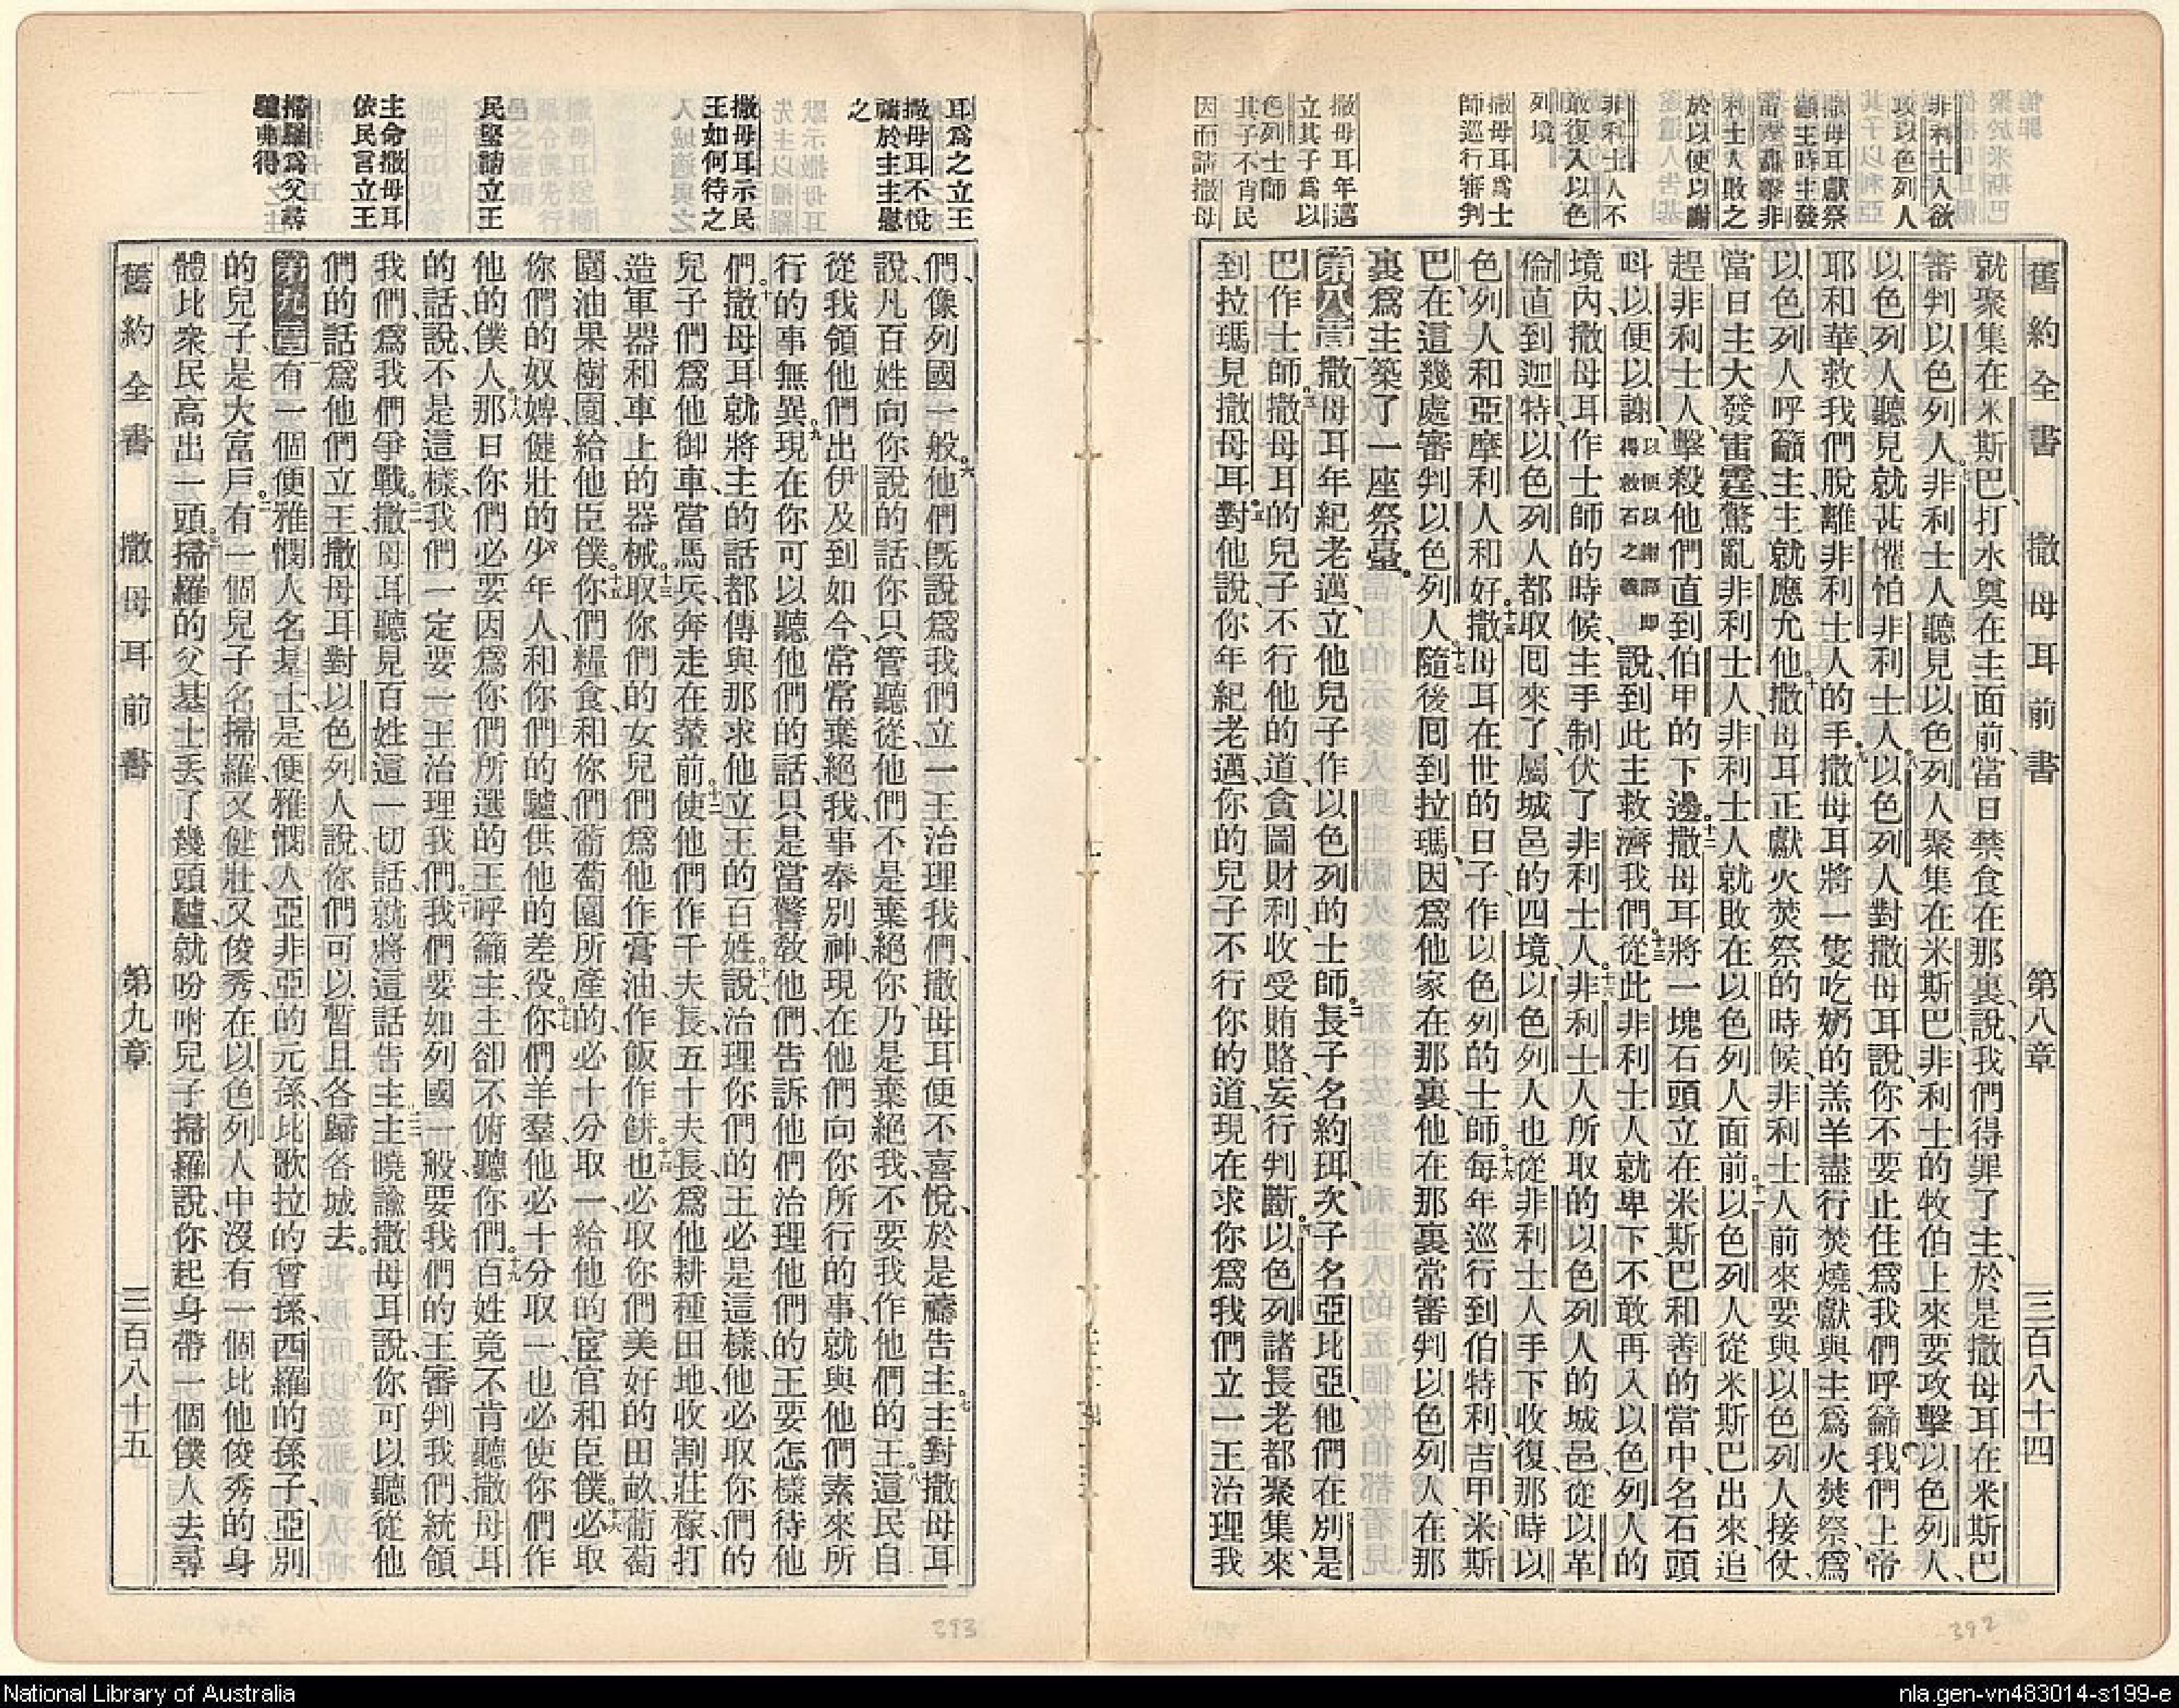 非利士人欲
攻以色列人
撒母耳獻祭
籲主時主發
雷霆轟擊非
利士人敗之
於以便以謝
非利士人不
敢復入以色
列境
撒母耳爲士
師巡行審判
撒母耳年邁
立其子爲以
色列士師
其子不肖民
因而請撒母
舊約全書 撒母耳前書 第八章 三百八十四
就聚集在米斯巴、打水奠在主面前、當日禁食在那裏、說、我們得罪了主、於是撒母耳在米斯巴
審判以色列人。七非利士人聽見以色列人聚集在米斯巴、非利士的牧伯上來要攻擊以色列人、
以色列人聽見就甚懼怕非利士人。八以色列人對撒母耳說、你不要止住爲我們呼籲我們上帝
耶和華、救我們脫離非利士人的手。九撒母耳將一隻吃奶的羔羊盡行焚燒、獻與主爲火焚祭、爲
以色列人呼籲主、主就應允他。十撒母耳正獻火焚祭的時候、非利士人前來要與以色列人接仗、
當日主大發雷霆、驚亂非利士人、非利士人就敗在以色列人面前。十一以色列人從米斯巴出來、追
趕非利士人、擊殺他們直到伯甲的下邊。十二撒母耳將一塊石頭立在米斯巴和善的當中、名石頭
叫以便以謝、以便以謝譯卽得救石之義說、到此主救濟我們。十三從此非利士人就卑下、不敢再入以色列人的
境內、撒母耳作士師的時候、主手制伏了非利士人。十四非利士人所取的以色列人的城邑、從以革
倫直到迦特、以色列人都取囘來了、屬城邑的四境、以色列人也從非利士人手下收復、那時以
色列人和亞摩利人和好。十五撒母耳在世的日子、作以色列的士師。十六每年巡行到伯特利、吉甲、米斯
巴、在這幾處審判以色列人。十七隨後囘到拉瑪、因爲他家在那裏、他在那裏常審判以色列人、在那
裏爲主築了一座祭臺。
第八章 一撒母耳年紀老邁、立他兒子作以色列的士師。二長子名約珥、次子名亞比亞、他們在別是
巴作士師。三撒母耳的兒子不行他的道、貪圖財利、收受賄賂、妄行判斷。四以色列諸長老都聚集、來
到拉瑪見撒母耳。五對他說、你年紀老邁、你的兒子不行你的道、現在求你爲我們立一王治理我
耳爲之立王
撒母耳不悅
禱於主主慰
之
撒母耳示民
王如何待之
民堅請立王
主命撒母耳
依民言立王
掃羅爲父尋
驢弗得
們、像列國一般。六他們旣說爲我們立一王治理我們、撒母耳便不喜悅、於是禱告主。七主對撒母耳
說、凡百姓向你說的話、你只管聽從、他們不是棄絕你、乃是棄絕我、不要我作他們的王。八這民自
從我領他們出伊及到如今、常常棄絕我、事奉別神、現在他們向你所行的事、就與他們素來所
行的事無異。九現在你可以聽他們的話、只是當警敎他們、告訴他們治理他們的王要怎樣待他
們。十撒母耳就將主的話都傳與那求他立王的百姓。十一說、治理你們的王必是這樣、他必取你們的
兒子們爲他御車、當馬兵、奔走在輦前。十二使他們作千夫長、五十夫長、爲他耕種田地、收割莊稼、打
造軍器和車上的器械。十三取你們的女兒們爲他作膏油、作飯作餅。十四也必取你們美好的田畝、葡萄
園、油果樹園、給他臣僕。十五你們糧食、和你們葡萄園所產的、必十分取一、給他的宦官和臣僕。十六必取
你們的奴婢、健壯的少年人、和你們的驢、供他的差役。十七你們羊羣、他必十分取一、也必使你們作
他的僕人。十八那日你們必要因爲你們所選的王呼籲主、主卻不俯聽你們。十九百姓竟不肯聽撒母耳
的話、說、不是這樣、我們一定要一王治理我們。二十我們要如列國一般、要我們的王審判我們、統領
我們、爲我們爭戰。二一撒母耳聽見百姓這一切話、就將這話告主。二二主曉諭撒母耳說、你可以聽從他
們的話、爲他們立王、撒母耳對以色列人說、你們可以暫且各歸各城去。
第九章 一有一個便雅憫人名基士、是便雅憫人亞非亞的元孫、比歌拉的曾孫、西羅的孫子、亞別
的兒子、是大富戶。二有一個兒子名掃羅、又健壯、又俊秀、在以色列人中沒有一個比他俊秀的、身
體比衆民高出一頭。三掃羅的父基士丟了幾頭驢、就吩咐兒子掃羅說、你起身帶一個僕人去尋
舊約全書 撒母耳前書 第九章 三百八十五
393
392
National Library of Australia
nla.gen-vn483014-s199-e